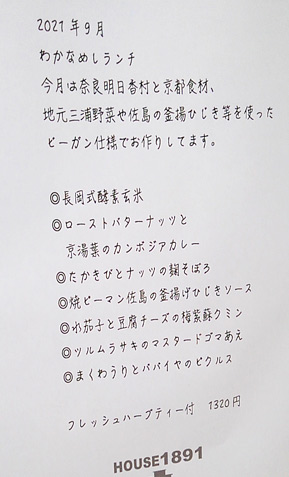 2021年9月
わかなめしランチ
今月は奈良明日香村と京都食材、
地元三浦野菜や佐島の釜揚ひじき等を使った
ビーガン仕様でお作りしてます。
◎長岡式酵素玄米
◎ローストバターナッツと
京湯葉のカンボジアカレー
◎たかきびとナッツの麹そぼろ
◎焼ピーマン佐島の釜揚げひじきソース
◎水茄子と豆腐チーズの梅紫蘇クミン
◎ツルムラサキのマスタードゴマあえ
◎まくわうりとパパイヤのピクルス
フレッシュハーブティー付 1320円
HOUSE1891